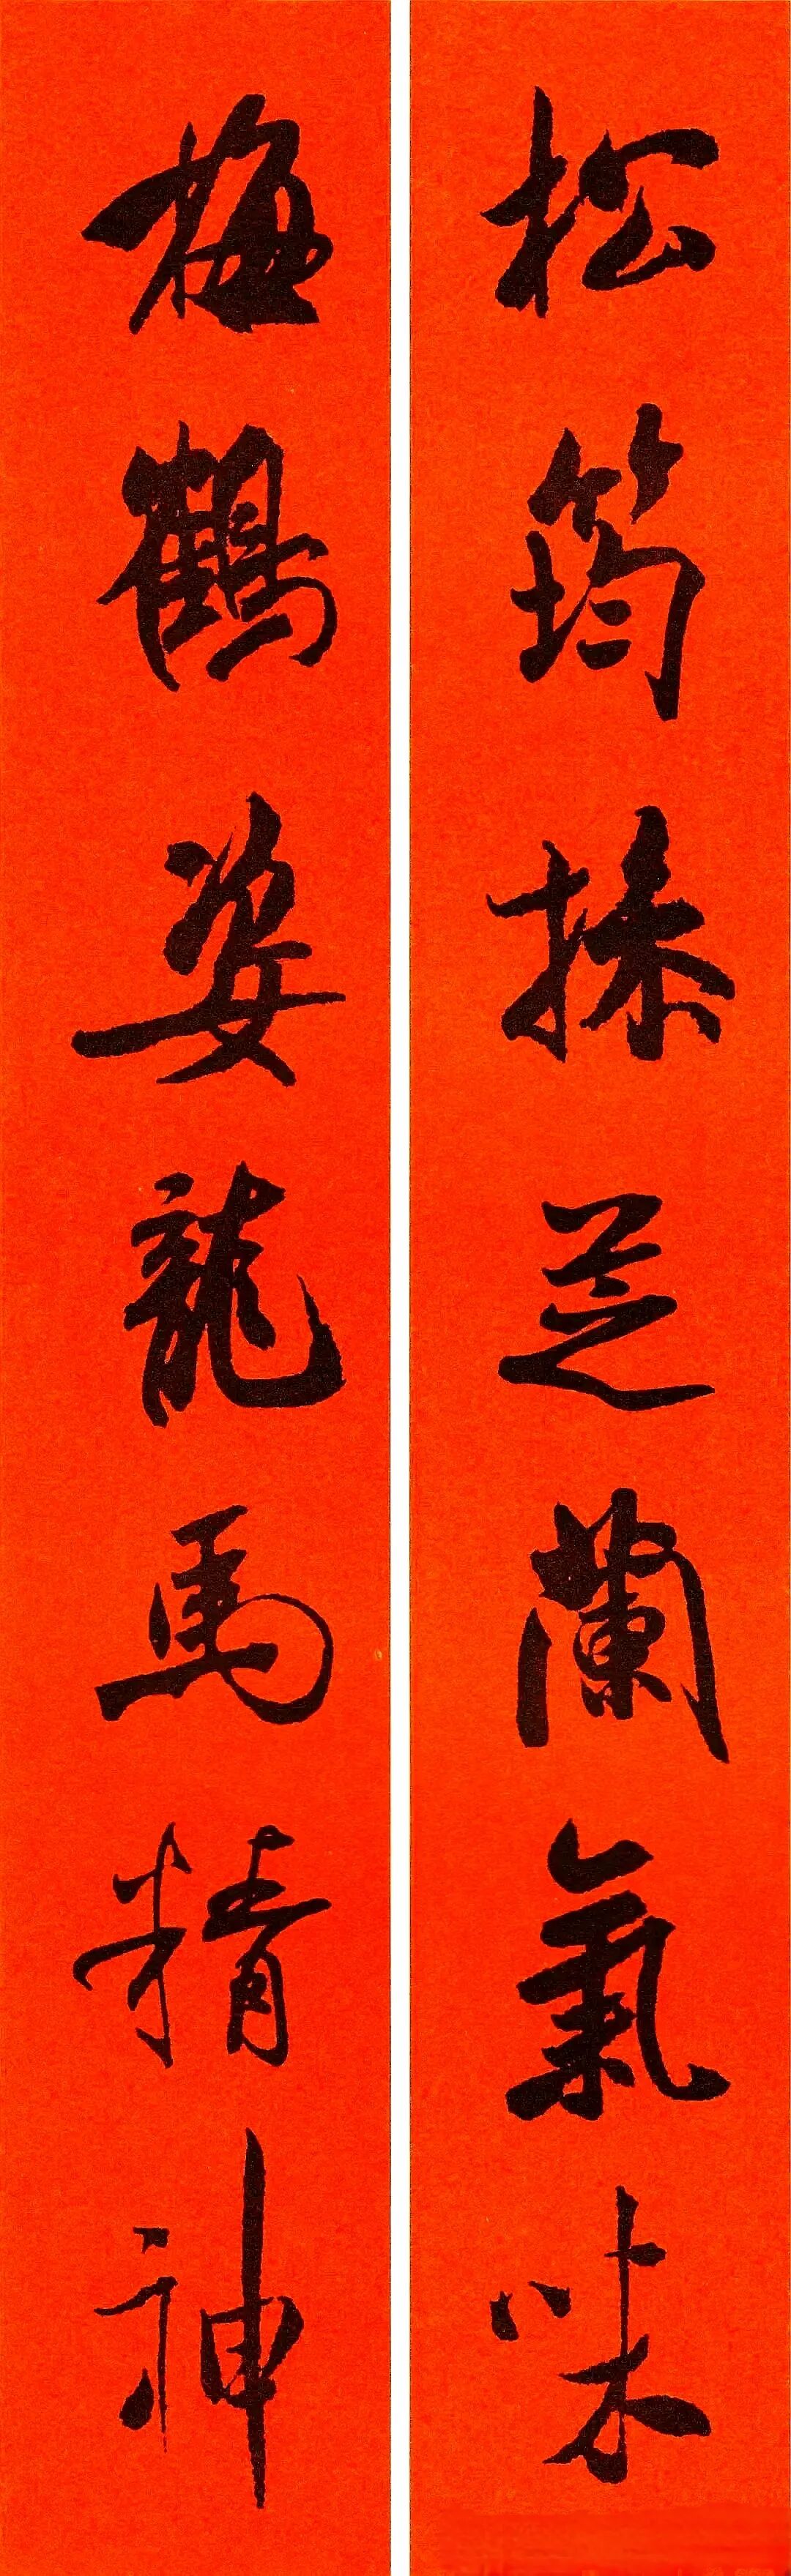 松筠操芝蘭氣味
梅鶴姿龍馬精神